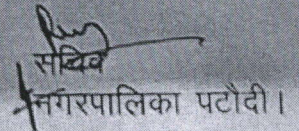 सचिव
नगरपालिका पटौदी।